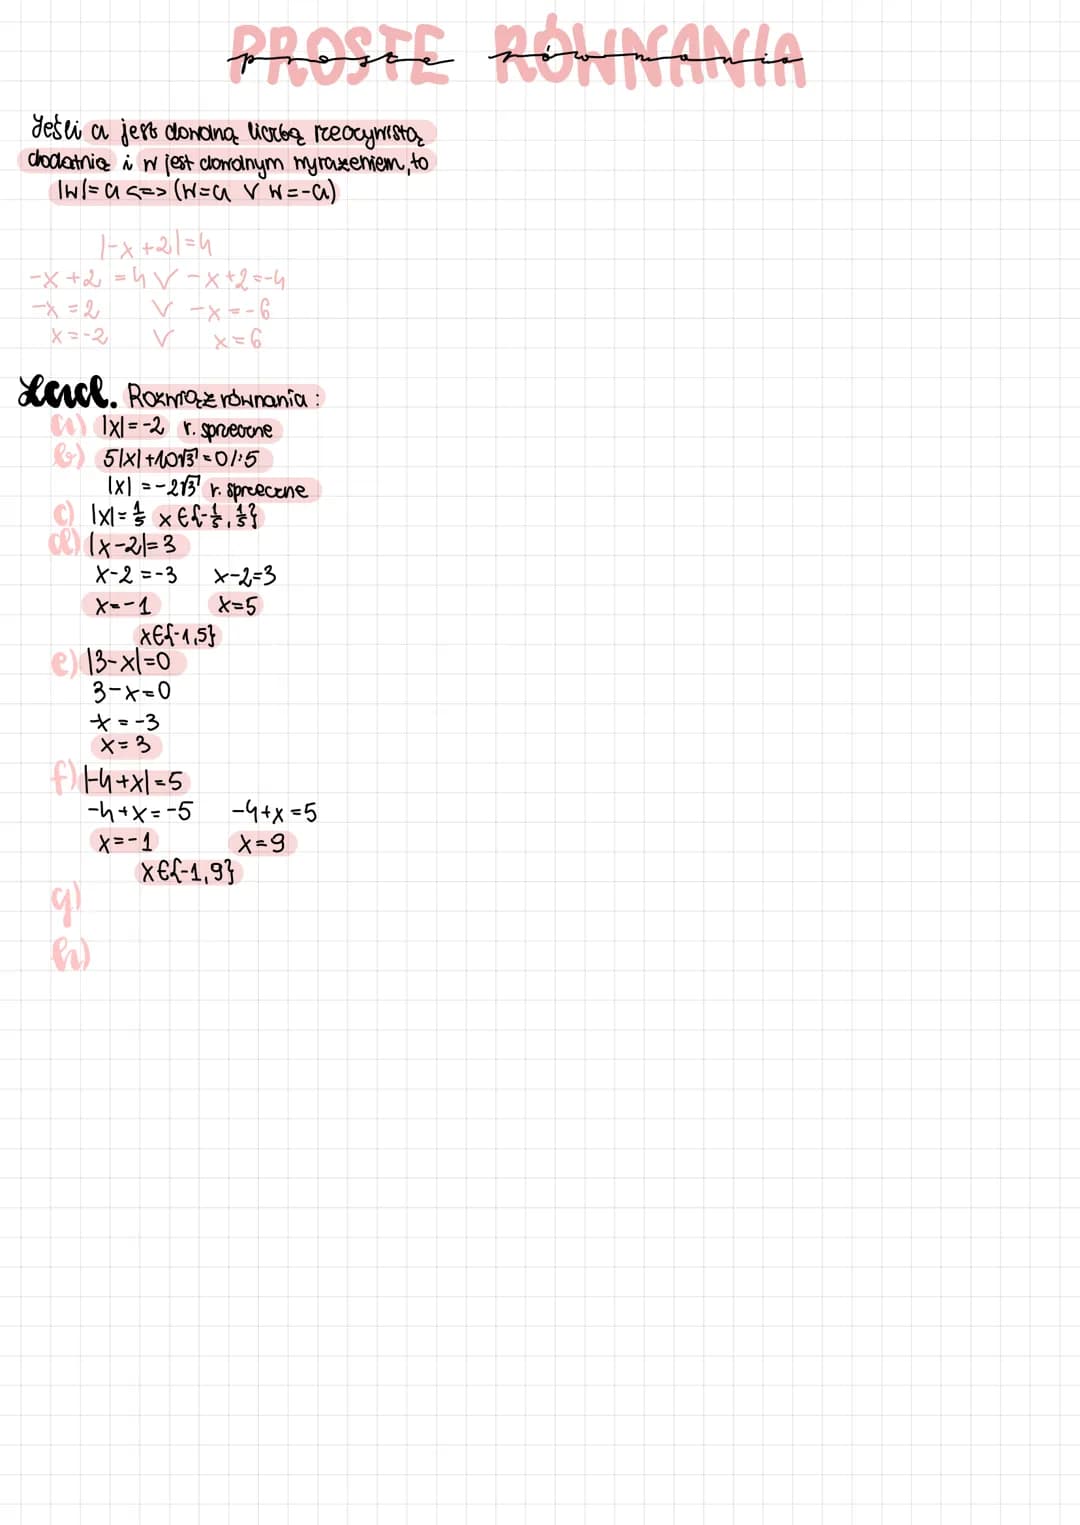 PROSTE RÓWNANIA
proste równania
Jeśli a jest dowolną liczbą rzeczywistą
dodatnią i w jest dowolnym wyrażeniem, to
|w|=a <=> (w=a ∨ w=-a)
|-x+2|=4
-x+2=4 ∨ -x+2=-4
-x=2 ∨ -x=-6
x=-2 ∨ x=6
Zad. Rozwiąż równania:
a) |x|=-2 r. sprzeczne
b) 5|x|+10√3=0/:5
|x|=-2√3 r. sprzeczne
c) |x|=1/5 x∈{-1/5, 1/5}
d) |x-2|=3
x-2=-3 x-2=3
x=-1 x=5
x∈{-1,5}
e) |3-x|=0
3-x=0
-x=-3
x=3
f) |-4+x|=5
-4+x=-5 -4+x=5
x=-1 x=9
x∈{-1,9}
g)
h)